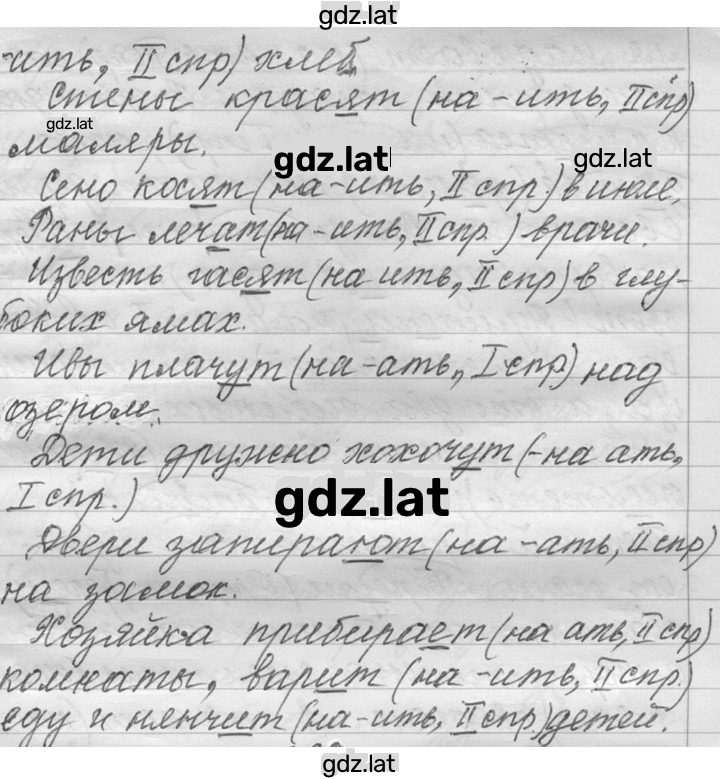 gdz.lat
-ить, II спр) хлеб.
Стены красят (на -ить, II спр)
gdz.lat
маляры.
gdz.lat
gdz.lat
Сено косят (на -ить, II спр.) в июле.
Раны лечат (на -ить, II спр.) врачи.
Известь гасят (на ить, II спр) в глу-
боких ямах.
Ивы плачут (на -ать, I спр.) над
озером.
Дети дружно хохочут (-на ать,
I спр.)
gdz.lat
Двери запирают (на -ать, II спр)
на замок.
Хозяйка прибирает (на ать, II спр)
комнаты, варит (на -ить, II спр.)
еду и нянчит (на -ить, II спр.) детей.
gdz.lat